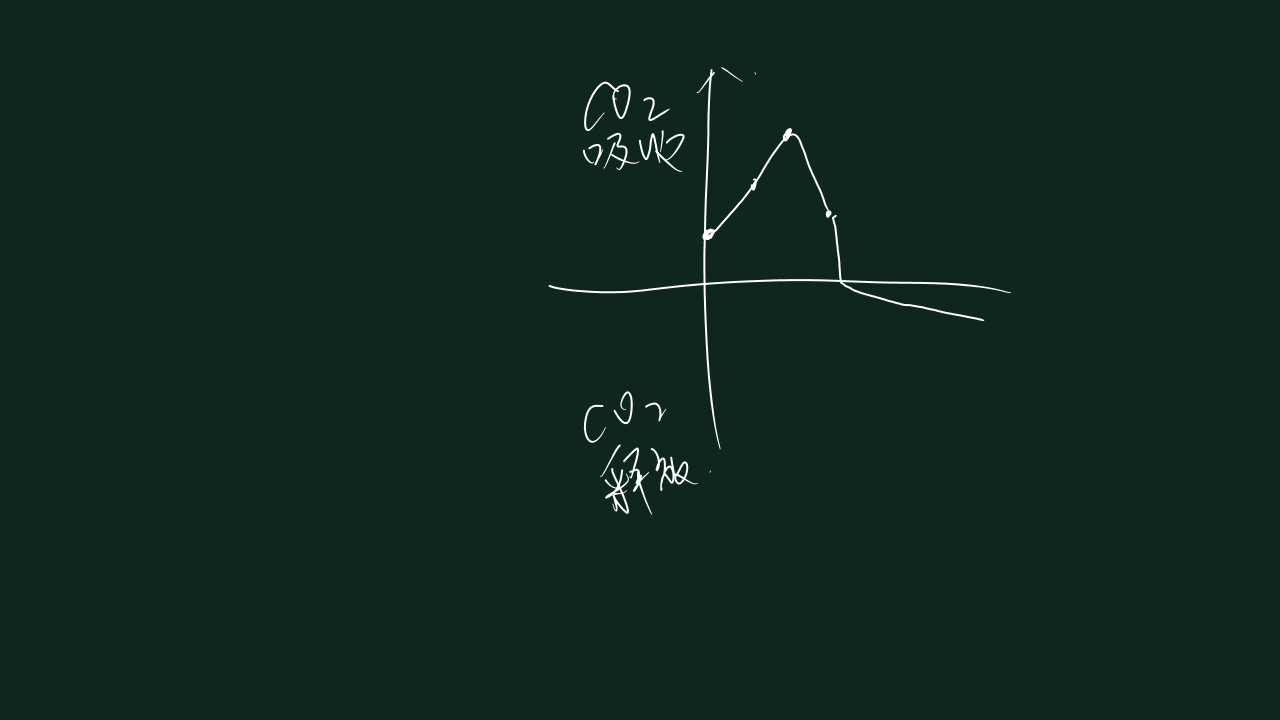 CO2
吸收
CO2
释放